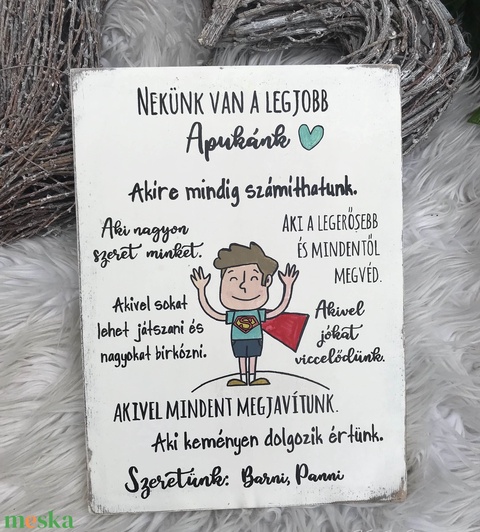 NEKÜNK VAN A LEGJOBB
Apukánk
Akire mindig számíthatunk.
Aki nagyon
szeret minket.
AKI A LEGERŐSEBB
ÉS MINDENTŐL
MEGVÉD.
Akivel sokat
lehet játszani és
nagyokat birkózni.
Akivel
jókat
viccelődünk.
AKIVEL MINDENT MEGJAVÍTUNK.
Aki keményen dolgozik értünk.
Szeretünk: Barni, Panni
meska